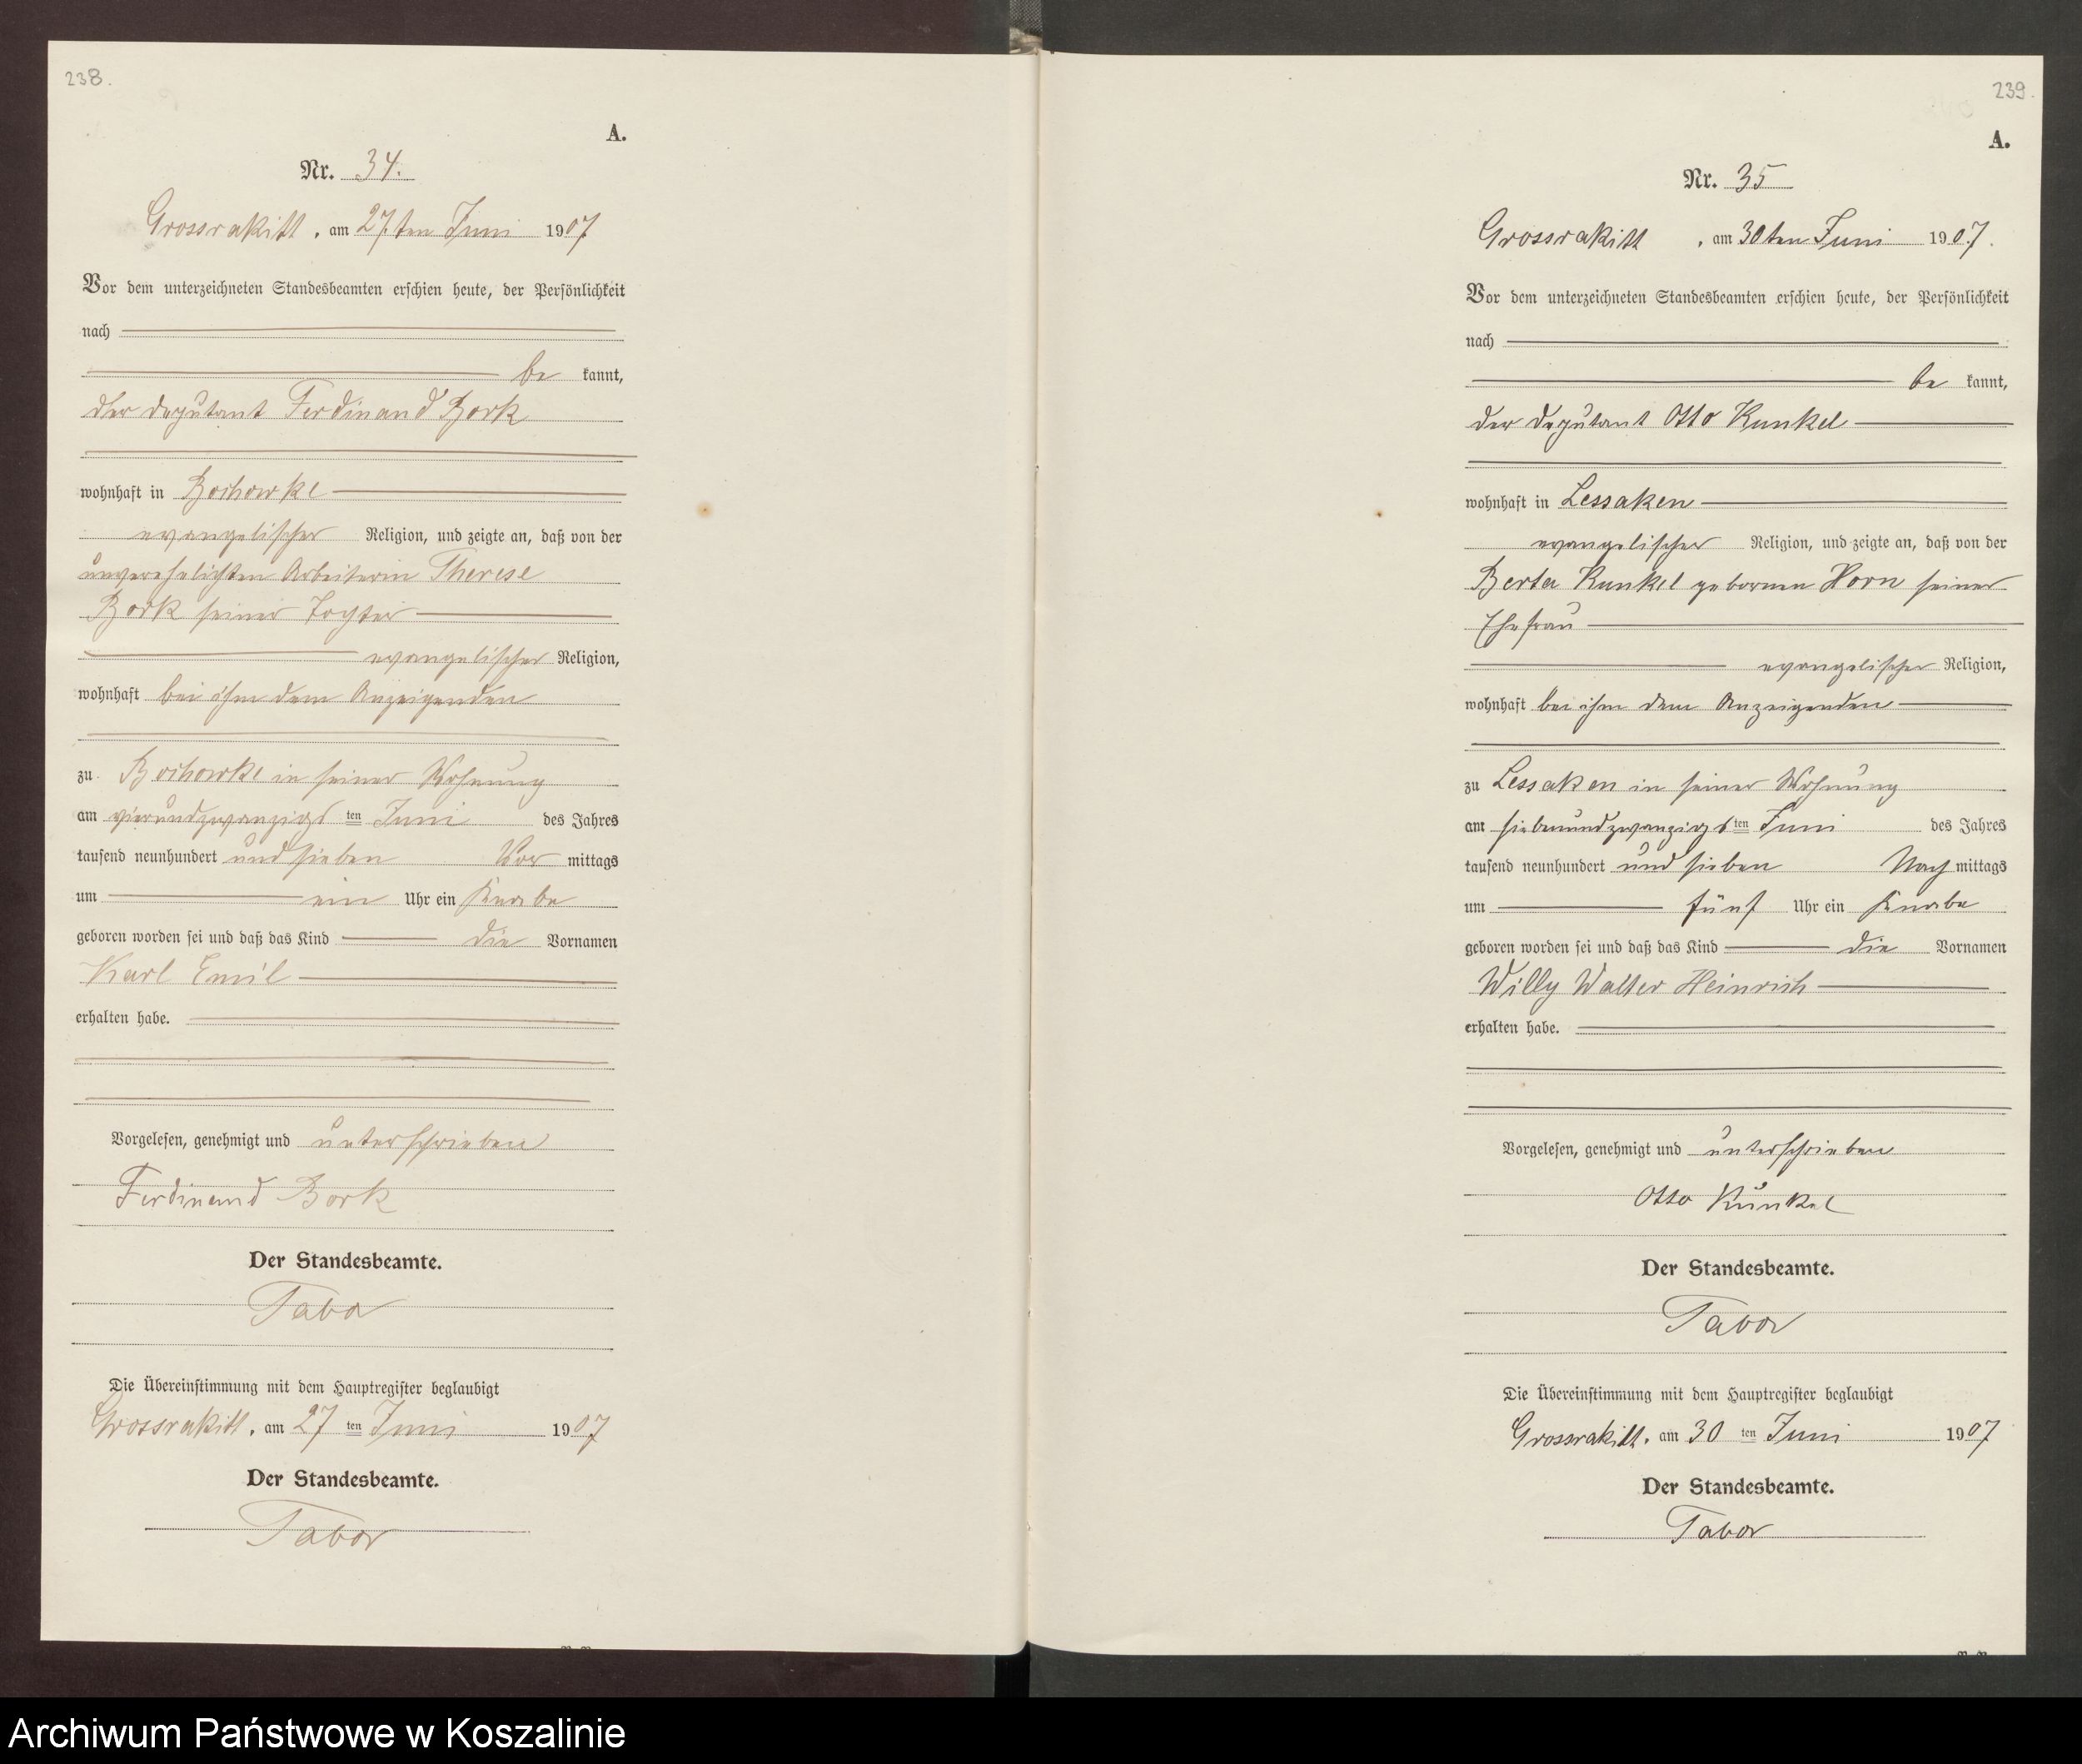 238.
A.
Nr. 34.
Grossrakitt, am 27.ten Juni 1907
Vor dem unterzeichneten Standesbeamten erschien heute, der Persönlichkeit
nach
be kannt,
der Deputant Ferdinand Bork
wohnhaft in Bochowke
evangelischer Religion, und zeigte an, daß von der
unverehelichten Arbeiterin Therese
Bork seiner Tochter
evangelischer Religion,
wohnhaft bei ihm dem Anzeigenden
zu Bochowke in seiner Wohnung
am vierundzwanzigsten Juni des Jahres
tausend neunhundert und sieben Vor mittags
um ein Uhr ein Knabe
geboren worden sei und daß das Kind die Vornamen
Karl Emil
erhalten habe.
Vorgelesen, genehmigt und unterschrieben
Ferdinand Bork
Der Standesbeamte.
Tabor
Die Übereinstimmung mit dem Hauptregister beglaubigt
Grossrakitt, am 27 ten Juni 1907
Der Standesbeamte.
Tabor
239.
A.
Nr. 35
Grossrakitt, am 30ten Juni 1907.
Vor dem unterzeichneten Standesbeamten erschien heute, der Persönlichkeit
nach
be kannt,
der Deputant Otto Kunkel
wohnhaft in Lessaken
evangelischer Religion, und zeigte an, daß von der
Berta Kunkel geborenen Horn seiner
Ehefrau
evangelischer Religion,
wohnhaft bei ihm dem Anzeigenden
zu Lessaken in seiner Wohnung
am siebenundzwanzigsten Juni des Jahres
tausend neunhundert und sieben Nach mittags
um fünf Uhr ein Knabe
geboren worden sei und daß das Kind die Vornamen
Willy Walter Heinrich
erhalten habe.
Vorgelesen, genehmigt und unterschrieben
Otto Kunkel
Der Standesbeamte.
Tabor
Die Übereinstimmung mit dem Hauptregister beglaubigt
Grossrakitt, am 30 ten Juni 1907
Der Standesbeamte.
Tabor
Archiwum Państwowe w Koszalinie